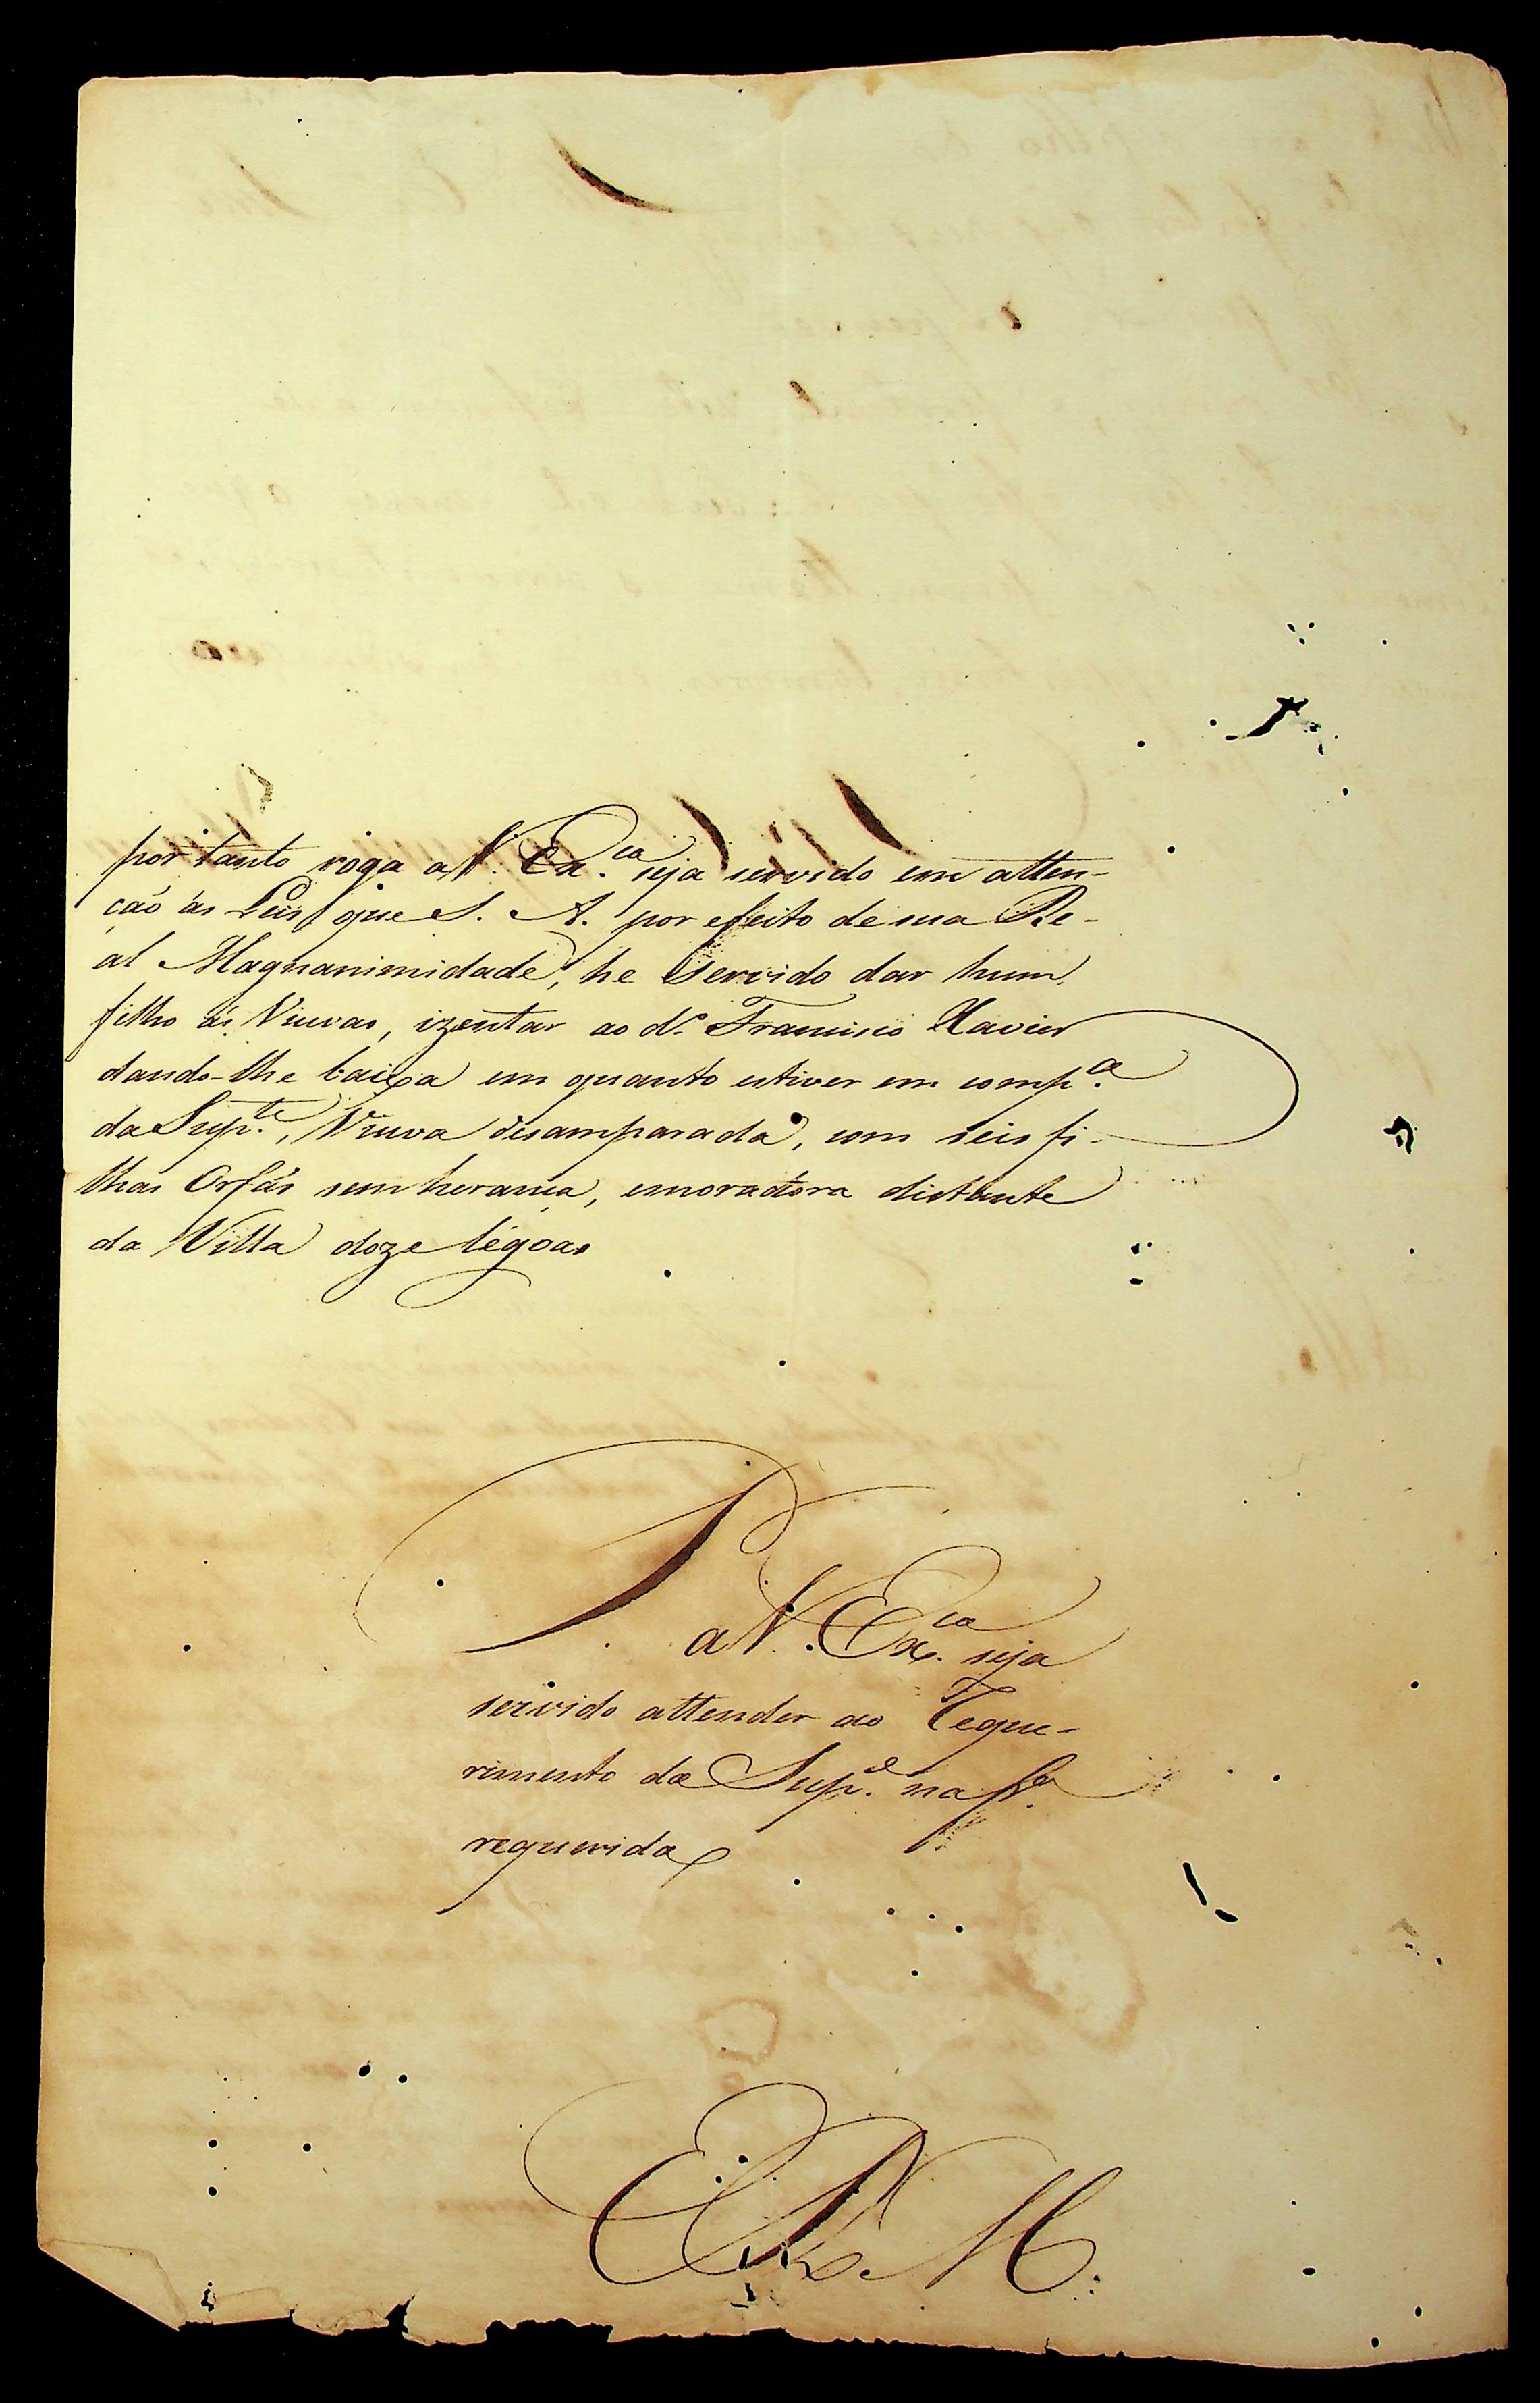 por tanto roga a V. Ex.ca seja servido em atten-
ção ás Leis que S. A. por efeito de sua Re-
al Magnanimidade, he servido dar hum
filho ás Viuvas, izentar ao d.o Francisco Xavier
dando-lhe baixa em quanto estiver em comp.a
da Sup.te, Viuva desamparada, com seis fi-
lhas Orfãs sem herança, e moradora distante
da Villa doze légoas
P. a V. Ex.ca seja
servido attender ao Reque-
rimento da Sup.e na f.a
requerida
E R M.